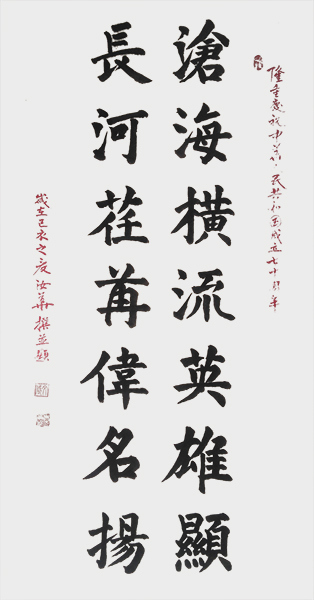 隆重慶祝中华人民共和国成立七十周年
滄海橫流英雄顯
長河荏苒偉名揚
歲在己亥之夏汝華撰並題